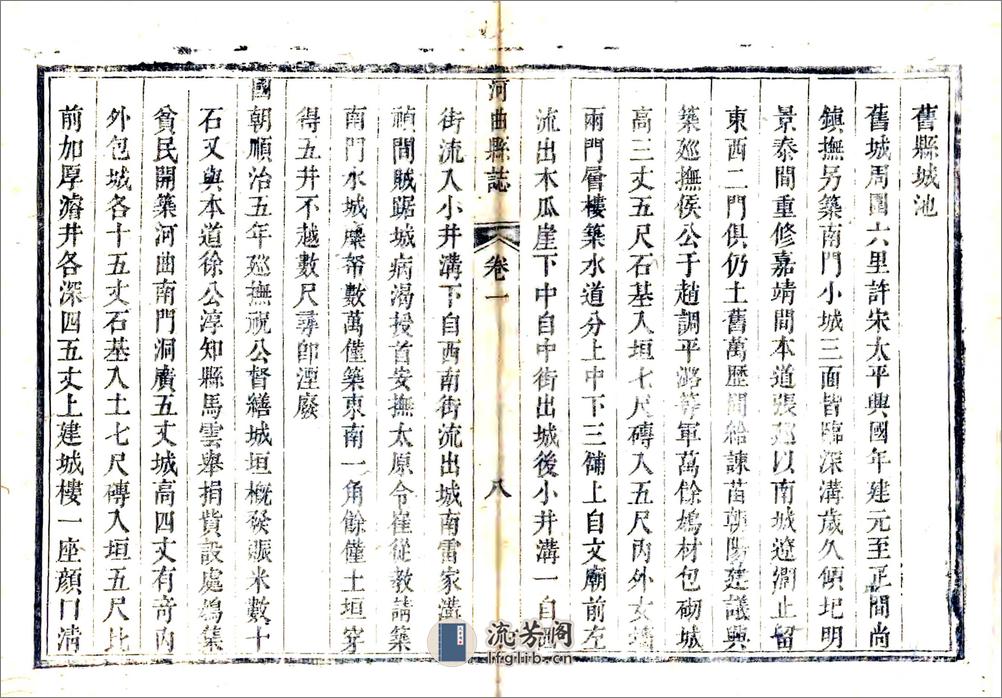 舊縣城池
舊城周圍六里許宋太平興國年建元至正間尚
鎮撫另築南門小城三面皆臨深溝歲久傾圮明
景泰間重修嘉靖間本道張廵以南城遼濶止留
東西二門俱仍土舊萬歷間給諫苗朝陽建議興
築廵撫侯公于趙調平潞等軍萬餘鳩材包砌城
高三丈五尺石基入垣七尺磚入五尺內外女墻
兩門層樓築水道分上中下三舖上自文廟前左
流出木瓜崖下中自中街出城後小井溝一自
河曲縣誌 卷一 八
街流入小井溝下自西南街流出城南雷家溝
禎間賊踞城病渴授首安撫太原令崔從教請築
南門水城糜帑數萬僅築東南一角餘僅土垣穿
得五井不越數尺尋卽湮廢
國朝順治五年廵撫祝公督繕城垣概發賑米數十
石又與本道徐公淳知縣馬雲舉捐貲設處鳩集
貧民開築河曲南門洞廣五丈城高四丈有奇內
外包城各十五丈石基入土七尺磚入垣五尺比
前加厚濬井各深四五丈上建城樓一座顏曰清
流芳閣
lfglib.cn